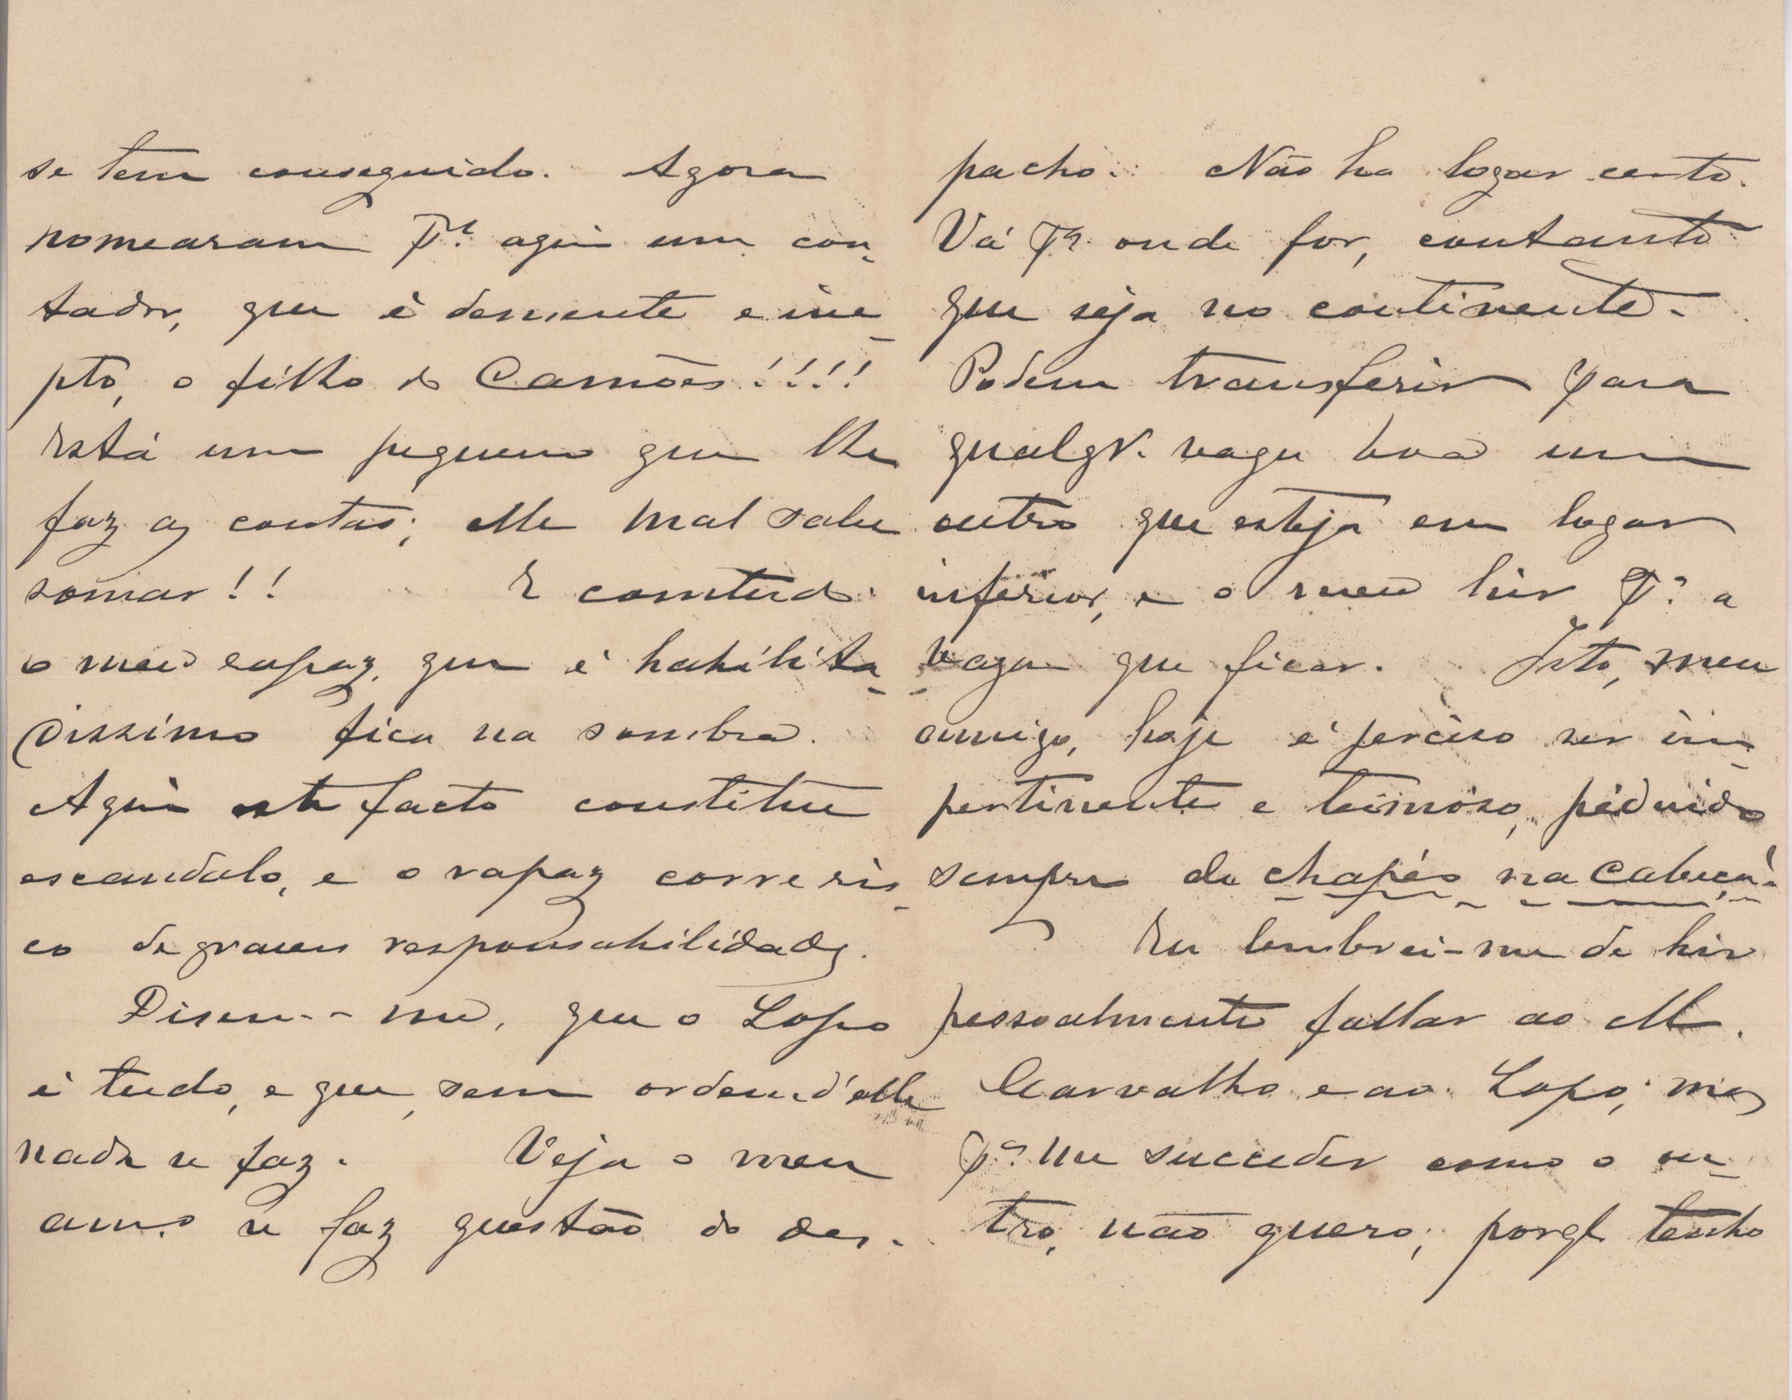 se tem conseguido. Agora
nomearam pª aqui um con-
tador, que é demente e ine-
pto, o filho do Camões!!!!
Está um pequeno que lhe
faz as contas; elle mal sabe
somar!! E comtudo
o meu rapaz, que é habilita-
dissimo fica na sombra.
Aqui este facto constitue
escandalo, e o rapaz corre ris-
co de graves responsabilidades.
Disem-me, que o Lopo
é tudo, e que, sem ordem d'elle
nada se faz. Veja o meu
amo se faz questão do des-
pacho. Não ha logar certo.
Vá pª onde for, contanto
que seja no continente.
Podem transferir para
qualqr. vaga boa um
outro que esteja em logar
inferior, e o meu hir pª a
vaga que ficar. Isto, meu
amigo, hoje é perciso ser im-
pertinente e teimoso, pedindo
sempre de chapéo na cabeça!
Eu lembrei-me de hir
pessoalmente fallar ao M.
Carvalho e ao Lopo; mas
pª me succeder como o ou-
tro, não quero; porq. tenho